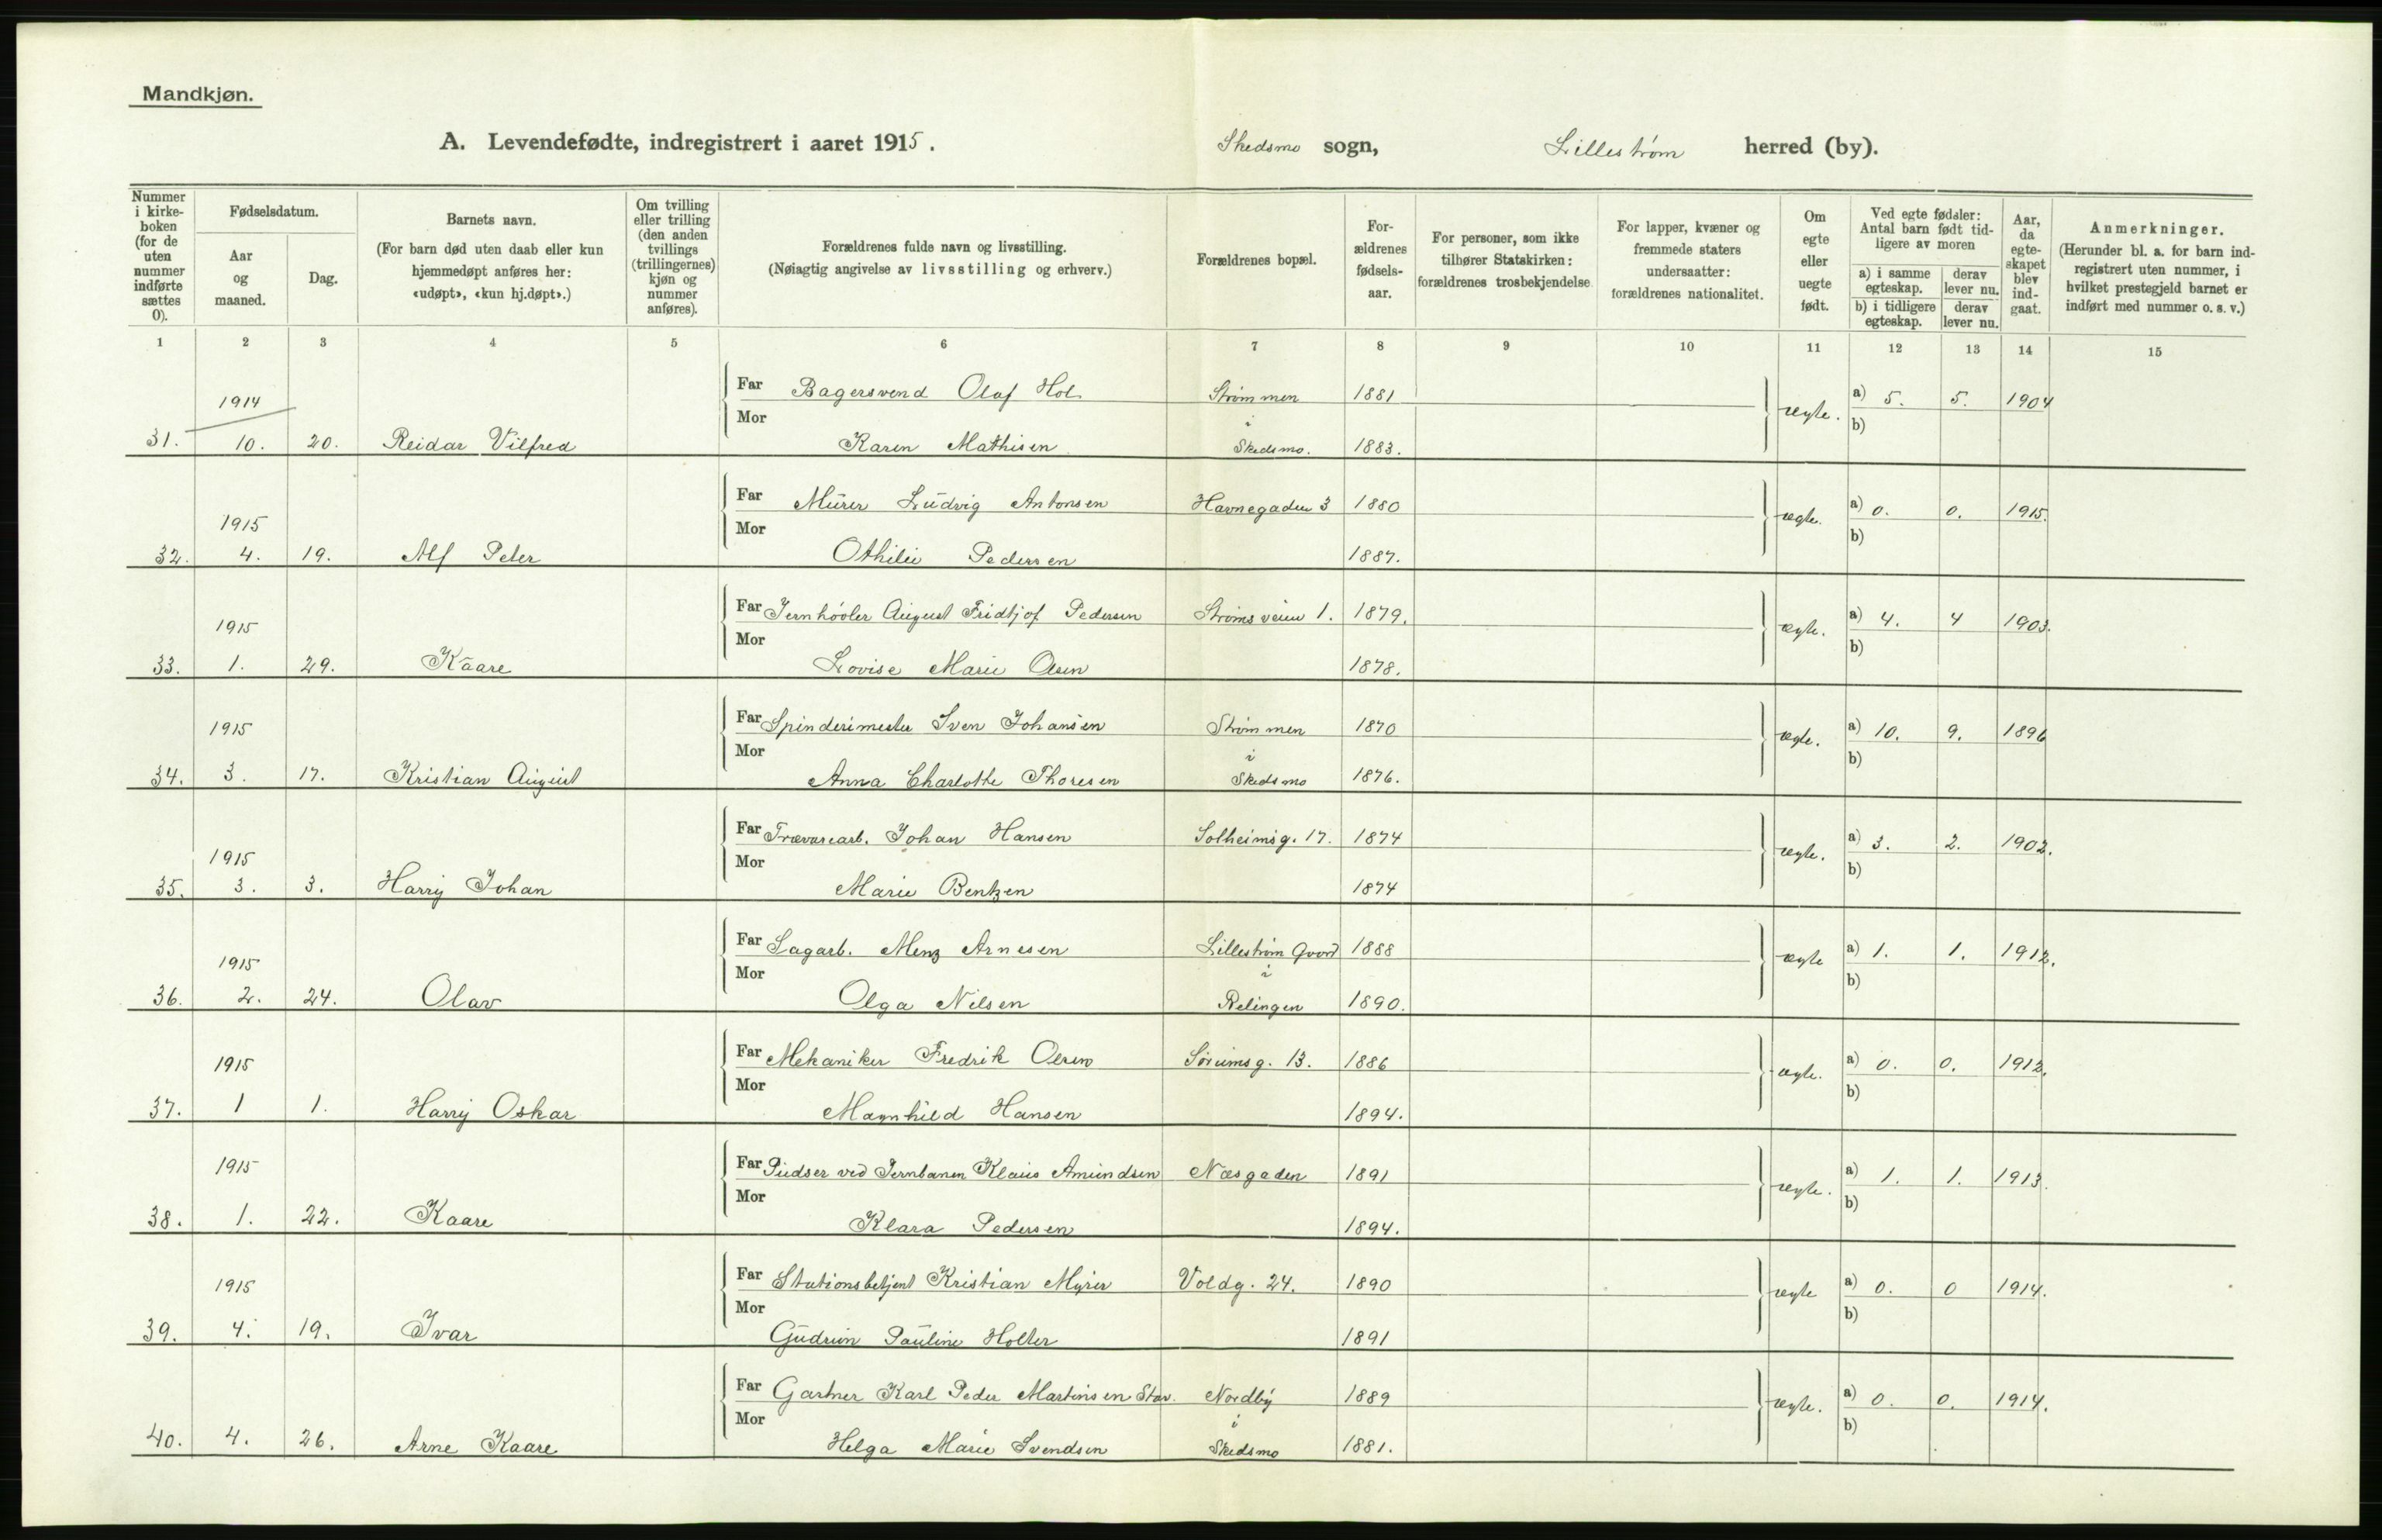 Mandkjøn.
A. Levendefødte, indregistrert i aaret 1915. Skedsmo sogn, Lillestrøm herred (by).
Nummer i kirke-boken (for de uten nummer indførte sættes 0).
Fødselsdatum.
Aar og maaned.
Dag.
Barnets navn.
(For barn død uten daab eller kun hjemmedøpt anføres her: «udøpt», «kun hj.døpt».)
Om tvilling eller trilling (den anden tvillings (trillingernes) kjøn og nummer anføres).
Forældrenes fulde navn og livsstilling.
(Nøiagtig angivelse av livsstilling og erhverv.)
Forældrenes bopæl.
For-ældrenes fødsels-aar.
For personer, som ikke tilhører Statskirken: forældrenes trosbekjendelse.
For lapper, kvæner og fremmede staters undersaatter: forældrenes nationalitet.
Om egte eller uegte født.
Ved egte fødsler: Antal barn født tid-ligere av moren
a) i samme egteskap.
derav lever nu.
b) i tidligere egteskap.
derav lever nu.
Aar, da egte-skapet blev ind-gaat.
Anmerkninger.
(Herunder bl. a. for barn ind-registrert uten nummer, i hvilket prestegjeld barnet er indført med nummer o. s. v.)
1 2 3 4 5 6 7 8 9 10 11 12 13 14 15
1914 Far Bagersvend Olaf Hol. Strømmen 1881 ægte. a) 5. 5. 1904
Mor i b)
31. 10. 20. Reidar Vilfred Karen Mathisen Skedsmo. 1883.
1915 Far Murer Ludvig Antonsen Havnegaden 3 1880 ægte. a) 0. 0. 1915.
Mor b)
32. 4. 19. Alf Peter Othilie Pedersen 1887.
1915 Far Jernhøvler August Fridtjof Pedersen Strømsveien 1. 1879. ægte. a) 4. 4 1903.
Mor b)
33. 1. 29. Kaare Lovise Marie Olsen 1878.
1915 Far Spinderimester Sven Johansen Strømmen 1870 ægte. a) 10. 9. 1896
Mor i b)
34. 3. 17. Kristian August Anna Charlotte Thoresen Skedsmo 1876.
1915 Far Trævarearb. Johan Hansen Solheimsg. 17. 1874 ægte. a) 3. 2. 1902.
Mor b)
35. 3. 3. Harry Johan Marie Bentzen 1874
1915 Far Sagarb. Menz Arnesen Lillestrøm Gaard 1888 ægte a) 1. 1. 1912.
Mor i b)
36. 2. 24. Olav Olga Nilsen Relingen 1890.
1915 Far Mekaniker Fredrik Olsen Sørumsg. 13. 1886 ægte. a) 0. 0. 1912.
Mor b)
37. 1 1. Harry Oskar Magnhild Hansen 1894.
1915 Far Pudser ved Jernbanen Klaus Amundsen Næsgaden 1891 ægte. a) 1. 1. 1913.
Mor b)
38. 1. 22. Kaare Klara Pedersen 1894.
1915 Far Stationsbetjent Kristian Myrer Voldg. 24. 1890 ægte a) 0. 0 1914.
Mor b)
39. 4. 19. Ivar Gudrun Pauline Holter 1891
Far Gartner Karl Peder Martinsen Stav. Nordby 1889 ægte. a) 0. 0. 1914.
Mor i b)
40. 4. 26. Arne Kaare Helga Marie Svendsen Skedsmo 1881.